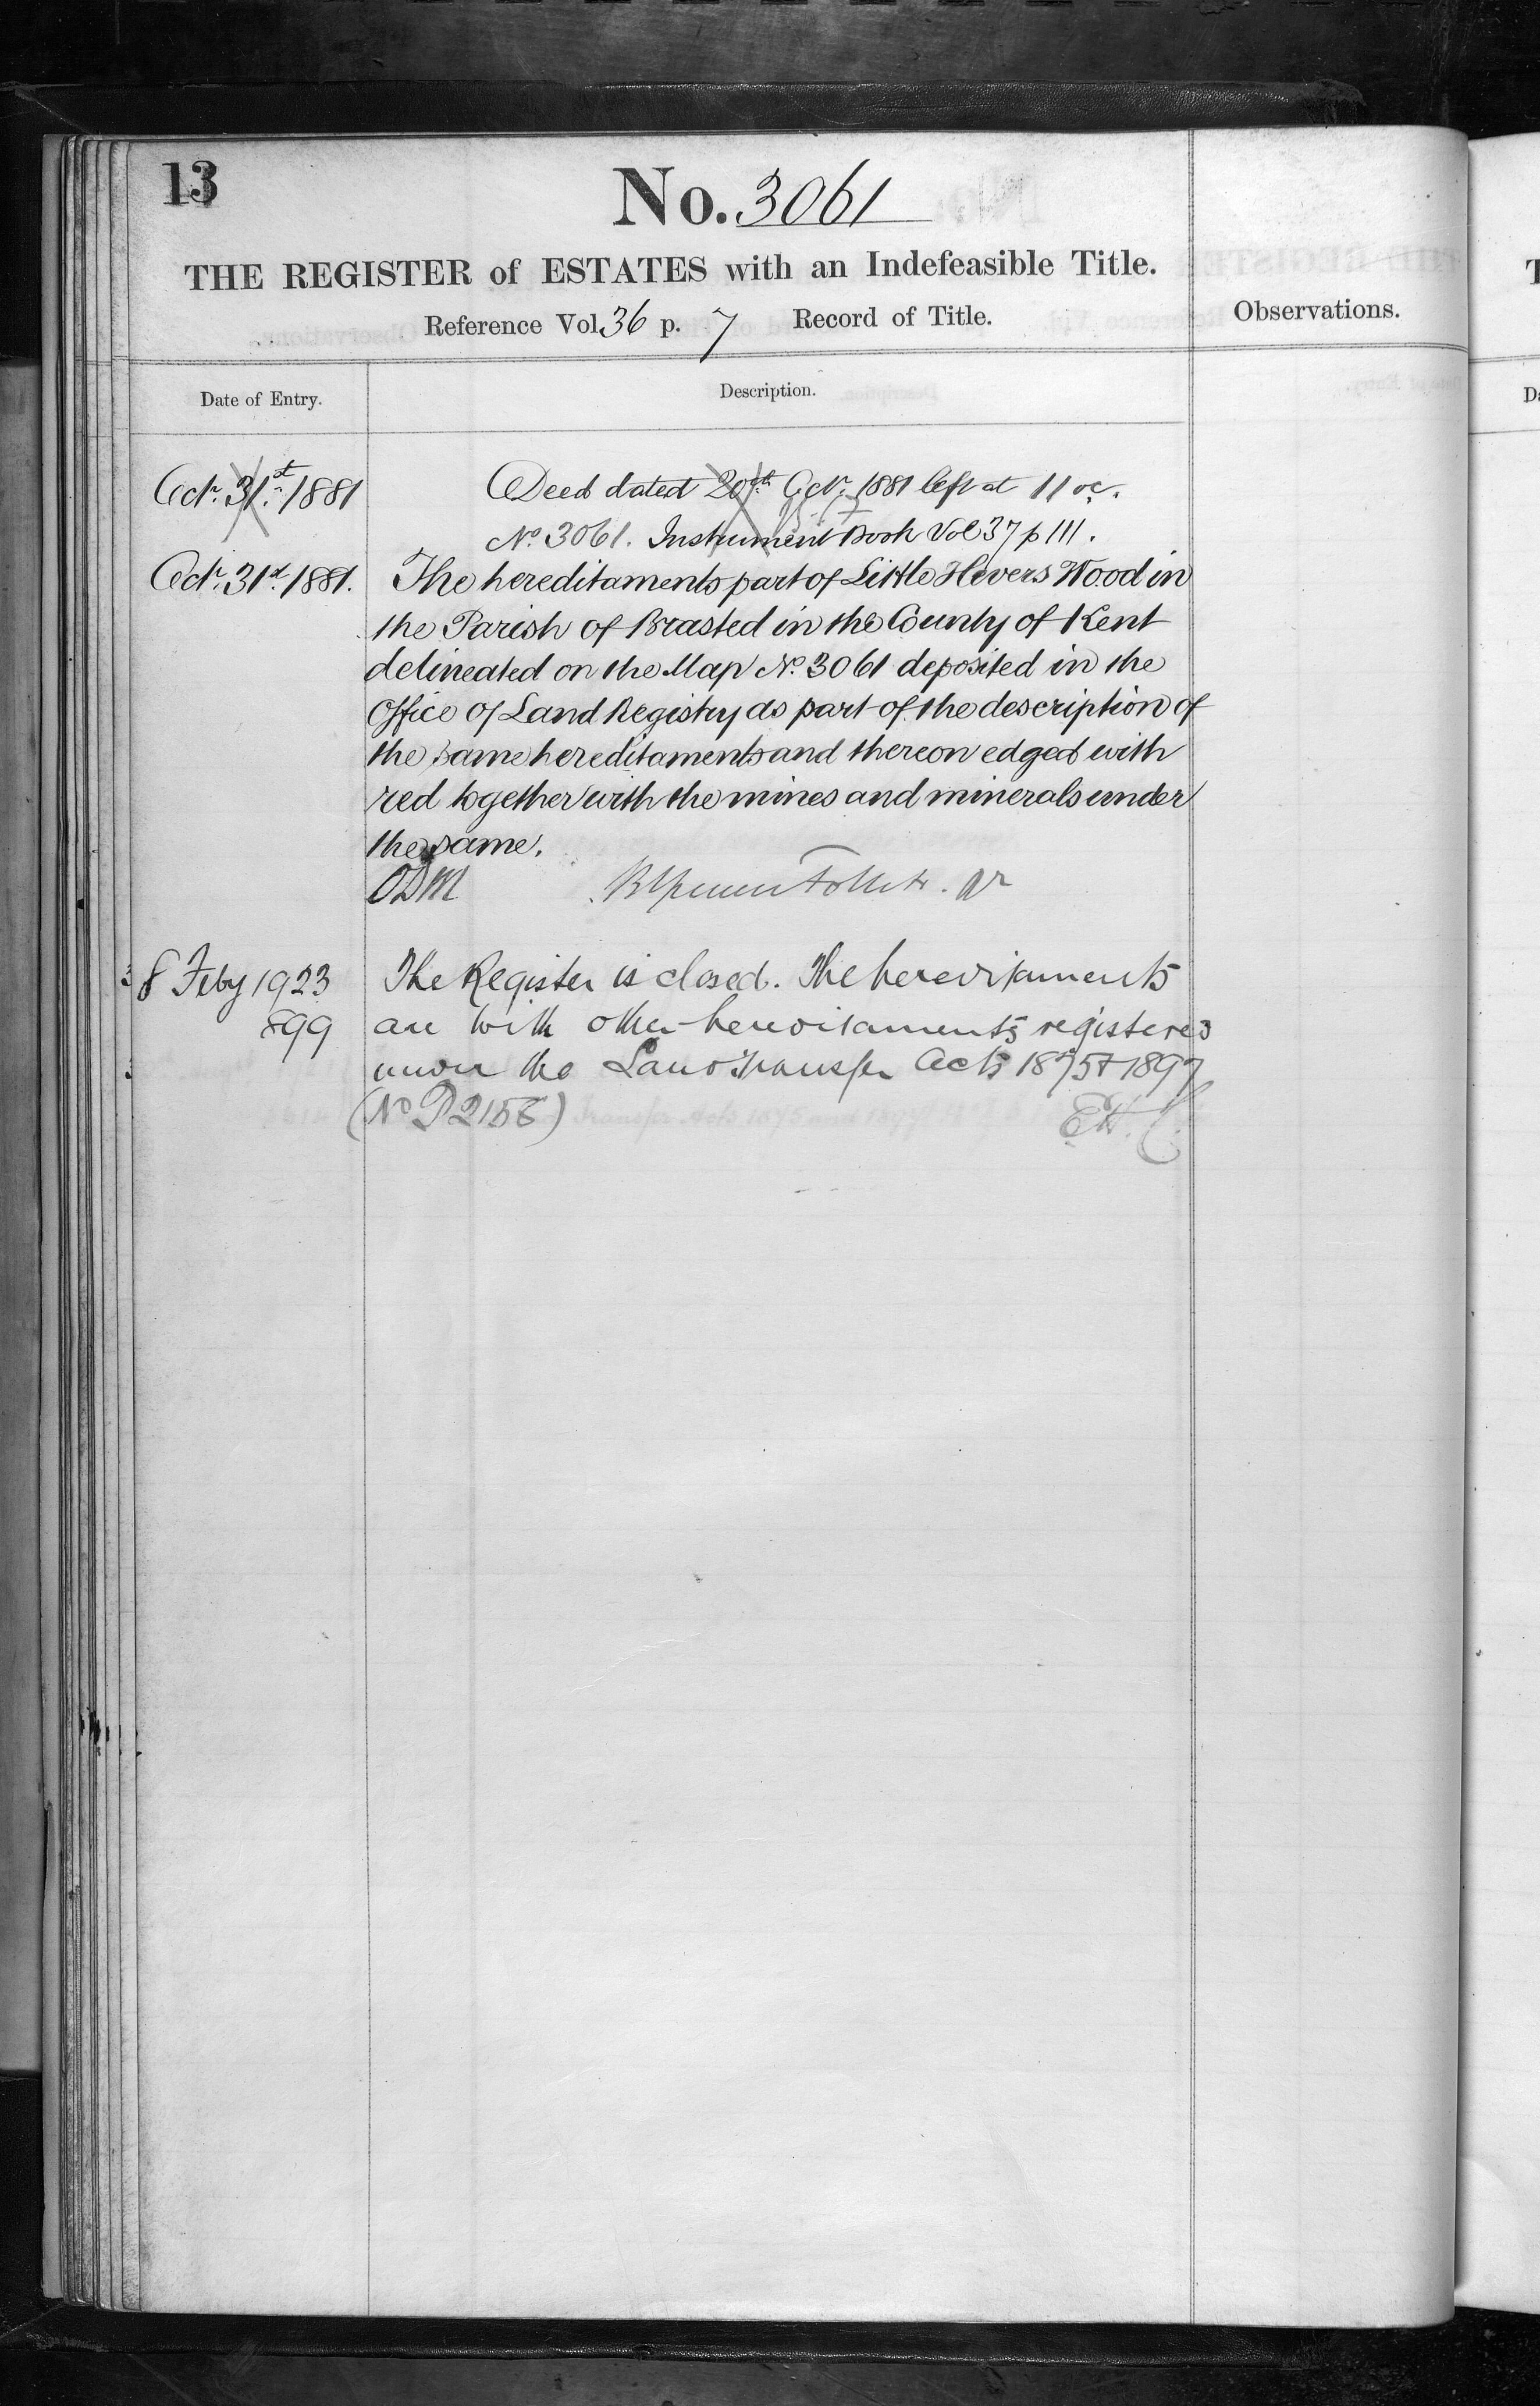 13
No. 3061
THE REGISTER of ESTATES with an Indefeasible Title.
Reference Vol. 36 p. 7 Record of Title.
Observations.
Date of Entry.
Description.
Octr. 31st. 1881
Deed dated 20th Octr. 1881 left at 11 oc.
No. 3061. Instrument Book Vol 37 p 111.
Octr. 31st. 1881.
The hereditaments part of Little Hevers Wood in
the Parish of Brasted in the County of Kent
delineated on the Map No. 3061 deposited in the
Office of Land Registry as part of the description of
the same hereditaments and thereon edged with
red together with the mines and minerals under
the same.
ODM
8 Feby 1923
899
The Register is closed. The hereditaments
are with other hereditaments registered
under the Land Transfer Acts 1875 & 1897
(No P2156)